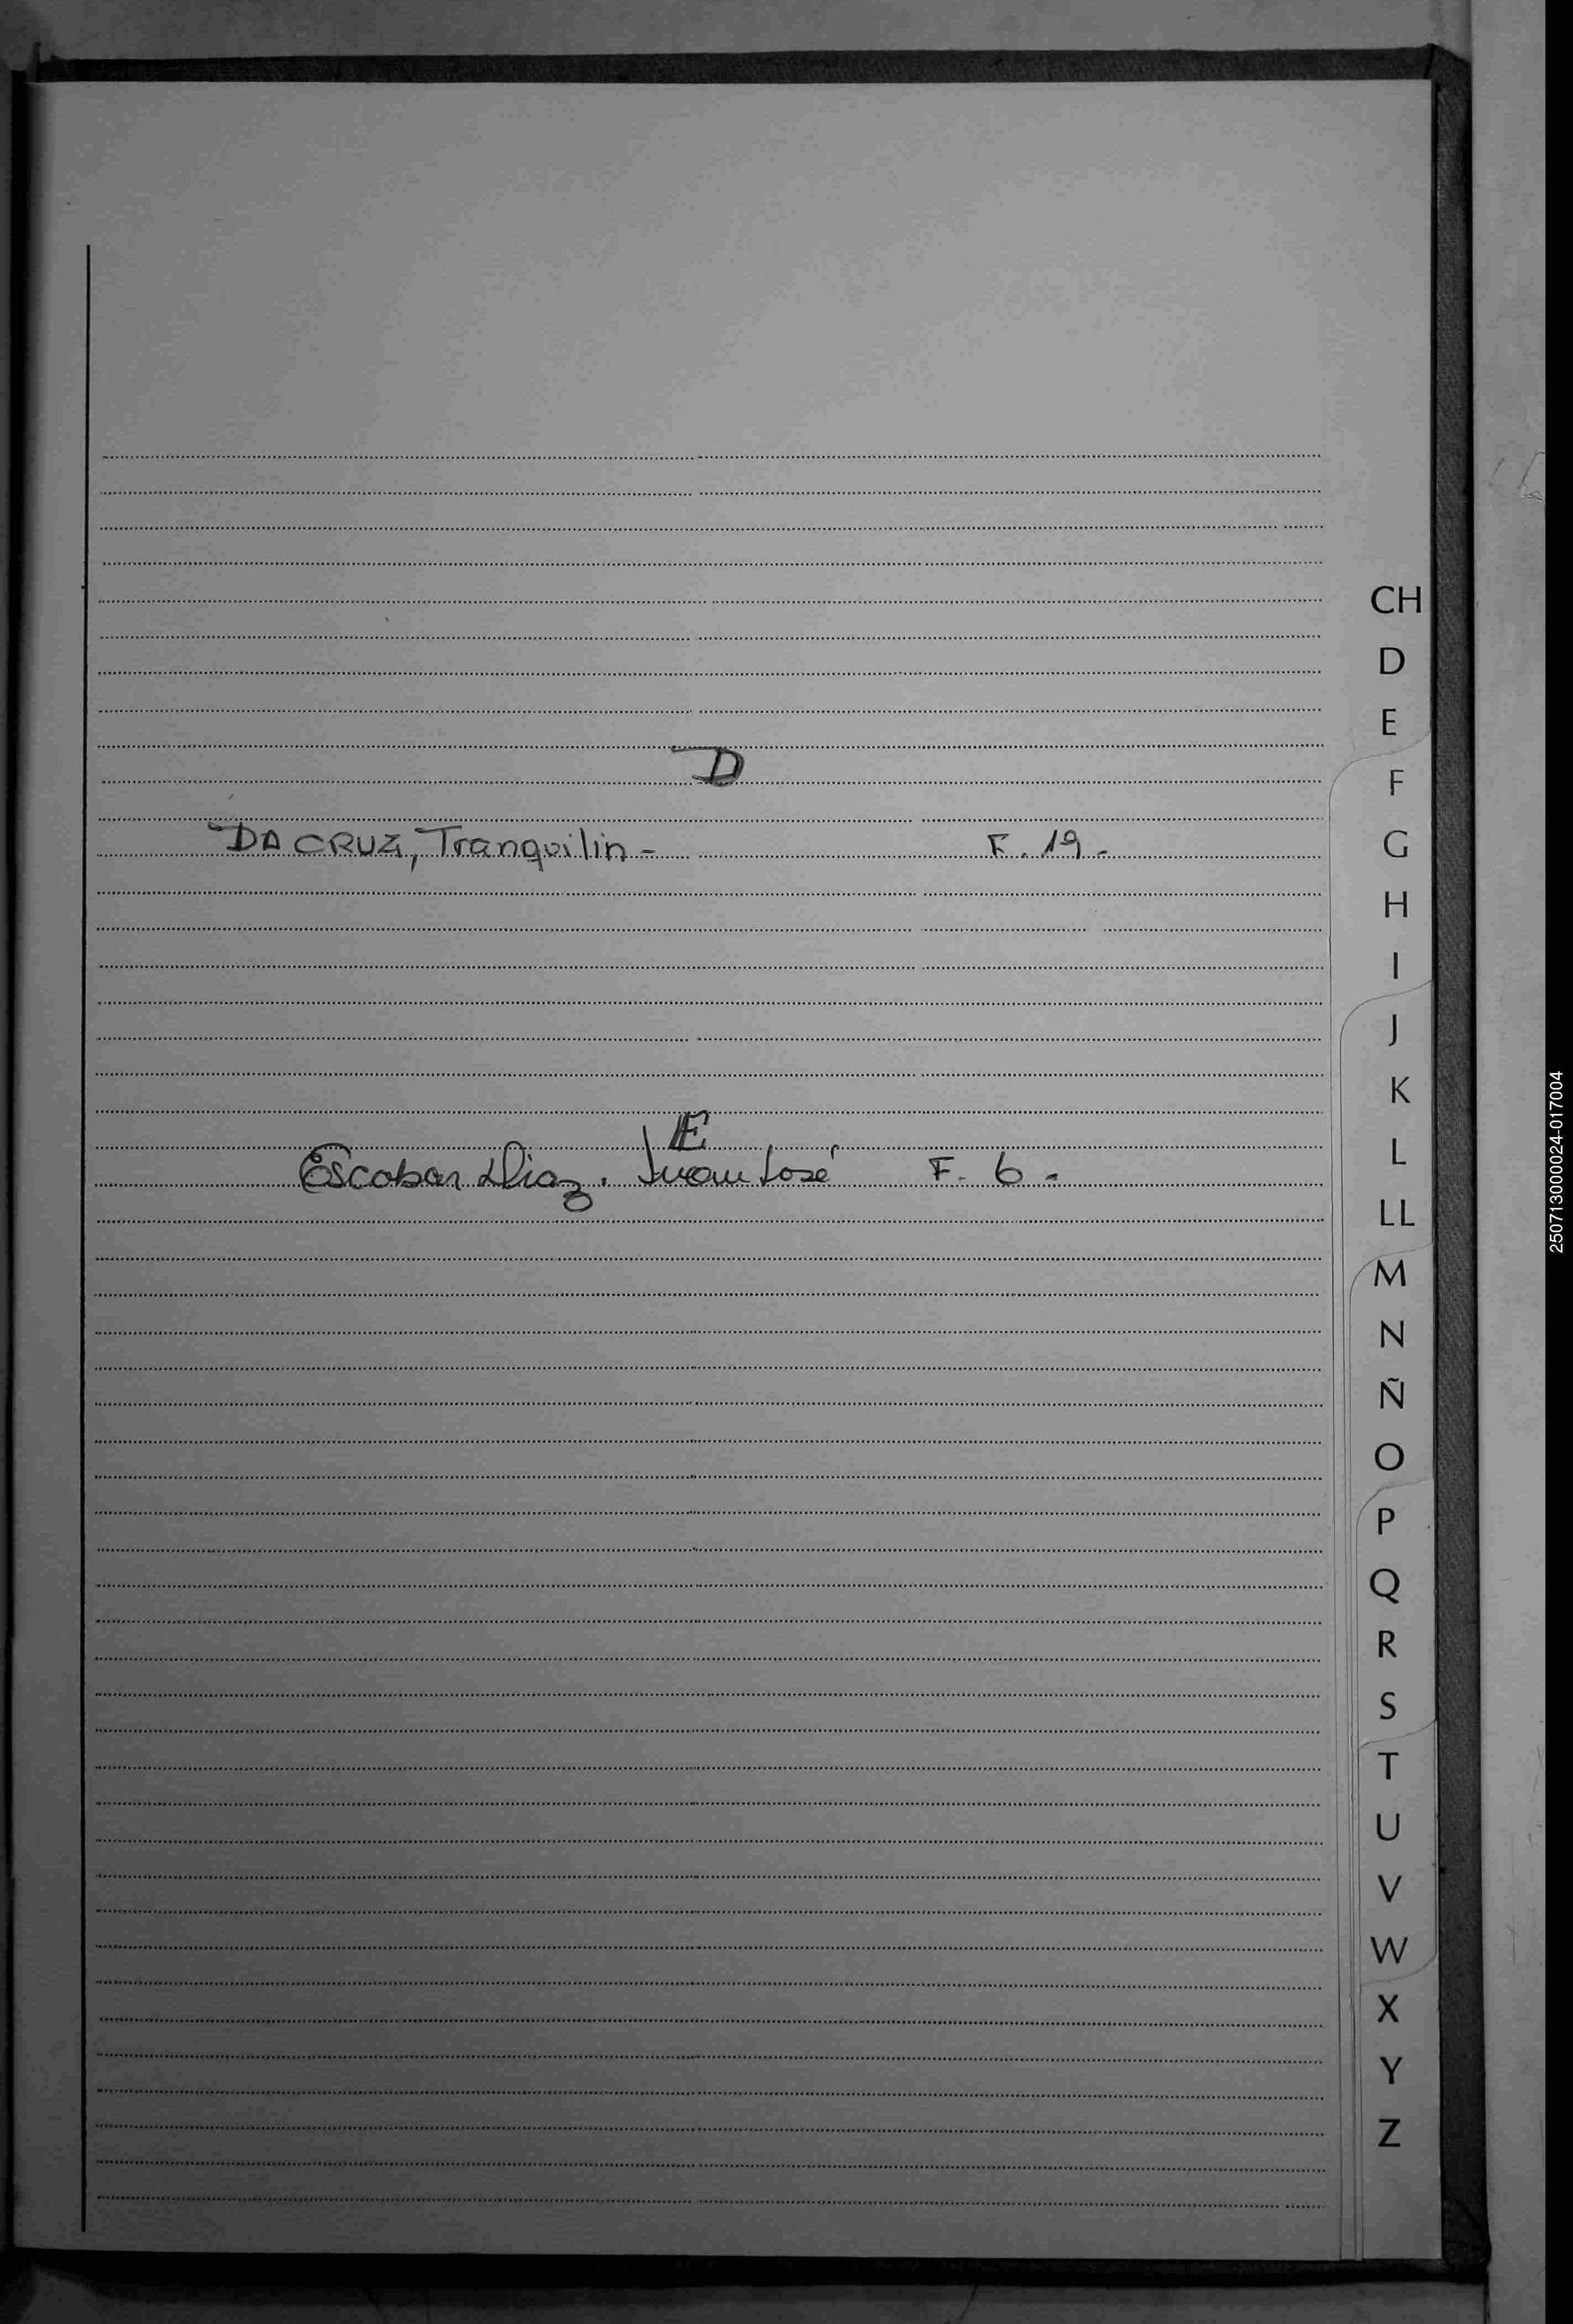 D
DA CRUZ, Tranquilin - F. 19 -
E
Escobar Diaz, Juan José F. 6 -
CH
D
E
F
G
H
I
J
K
L
LL
M
N
Ñ
O
P
Q
R
S
T
U
V
W
X
Y
Z
250713000024-017004